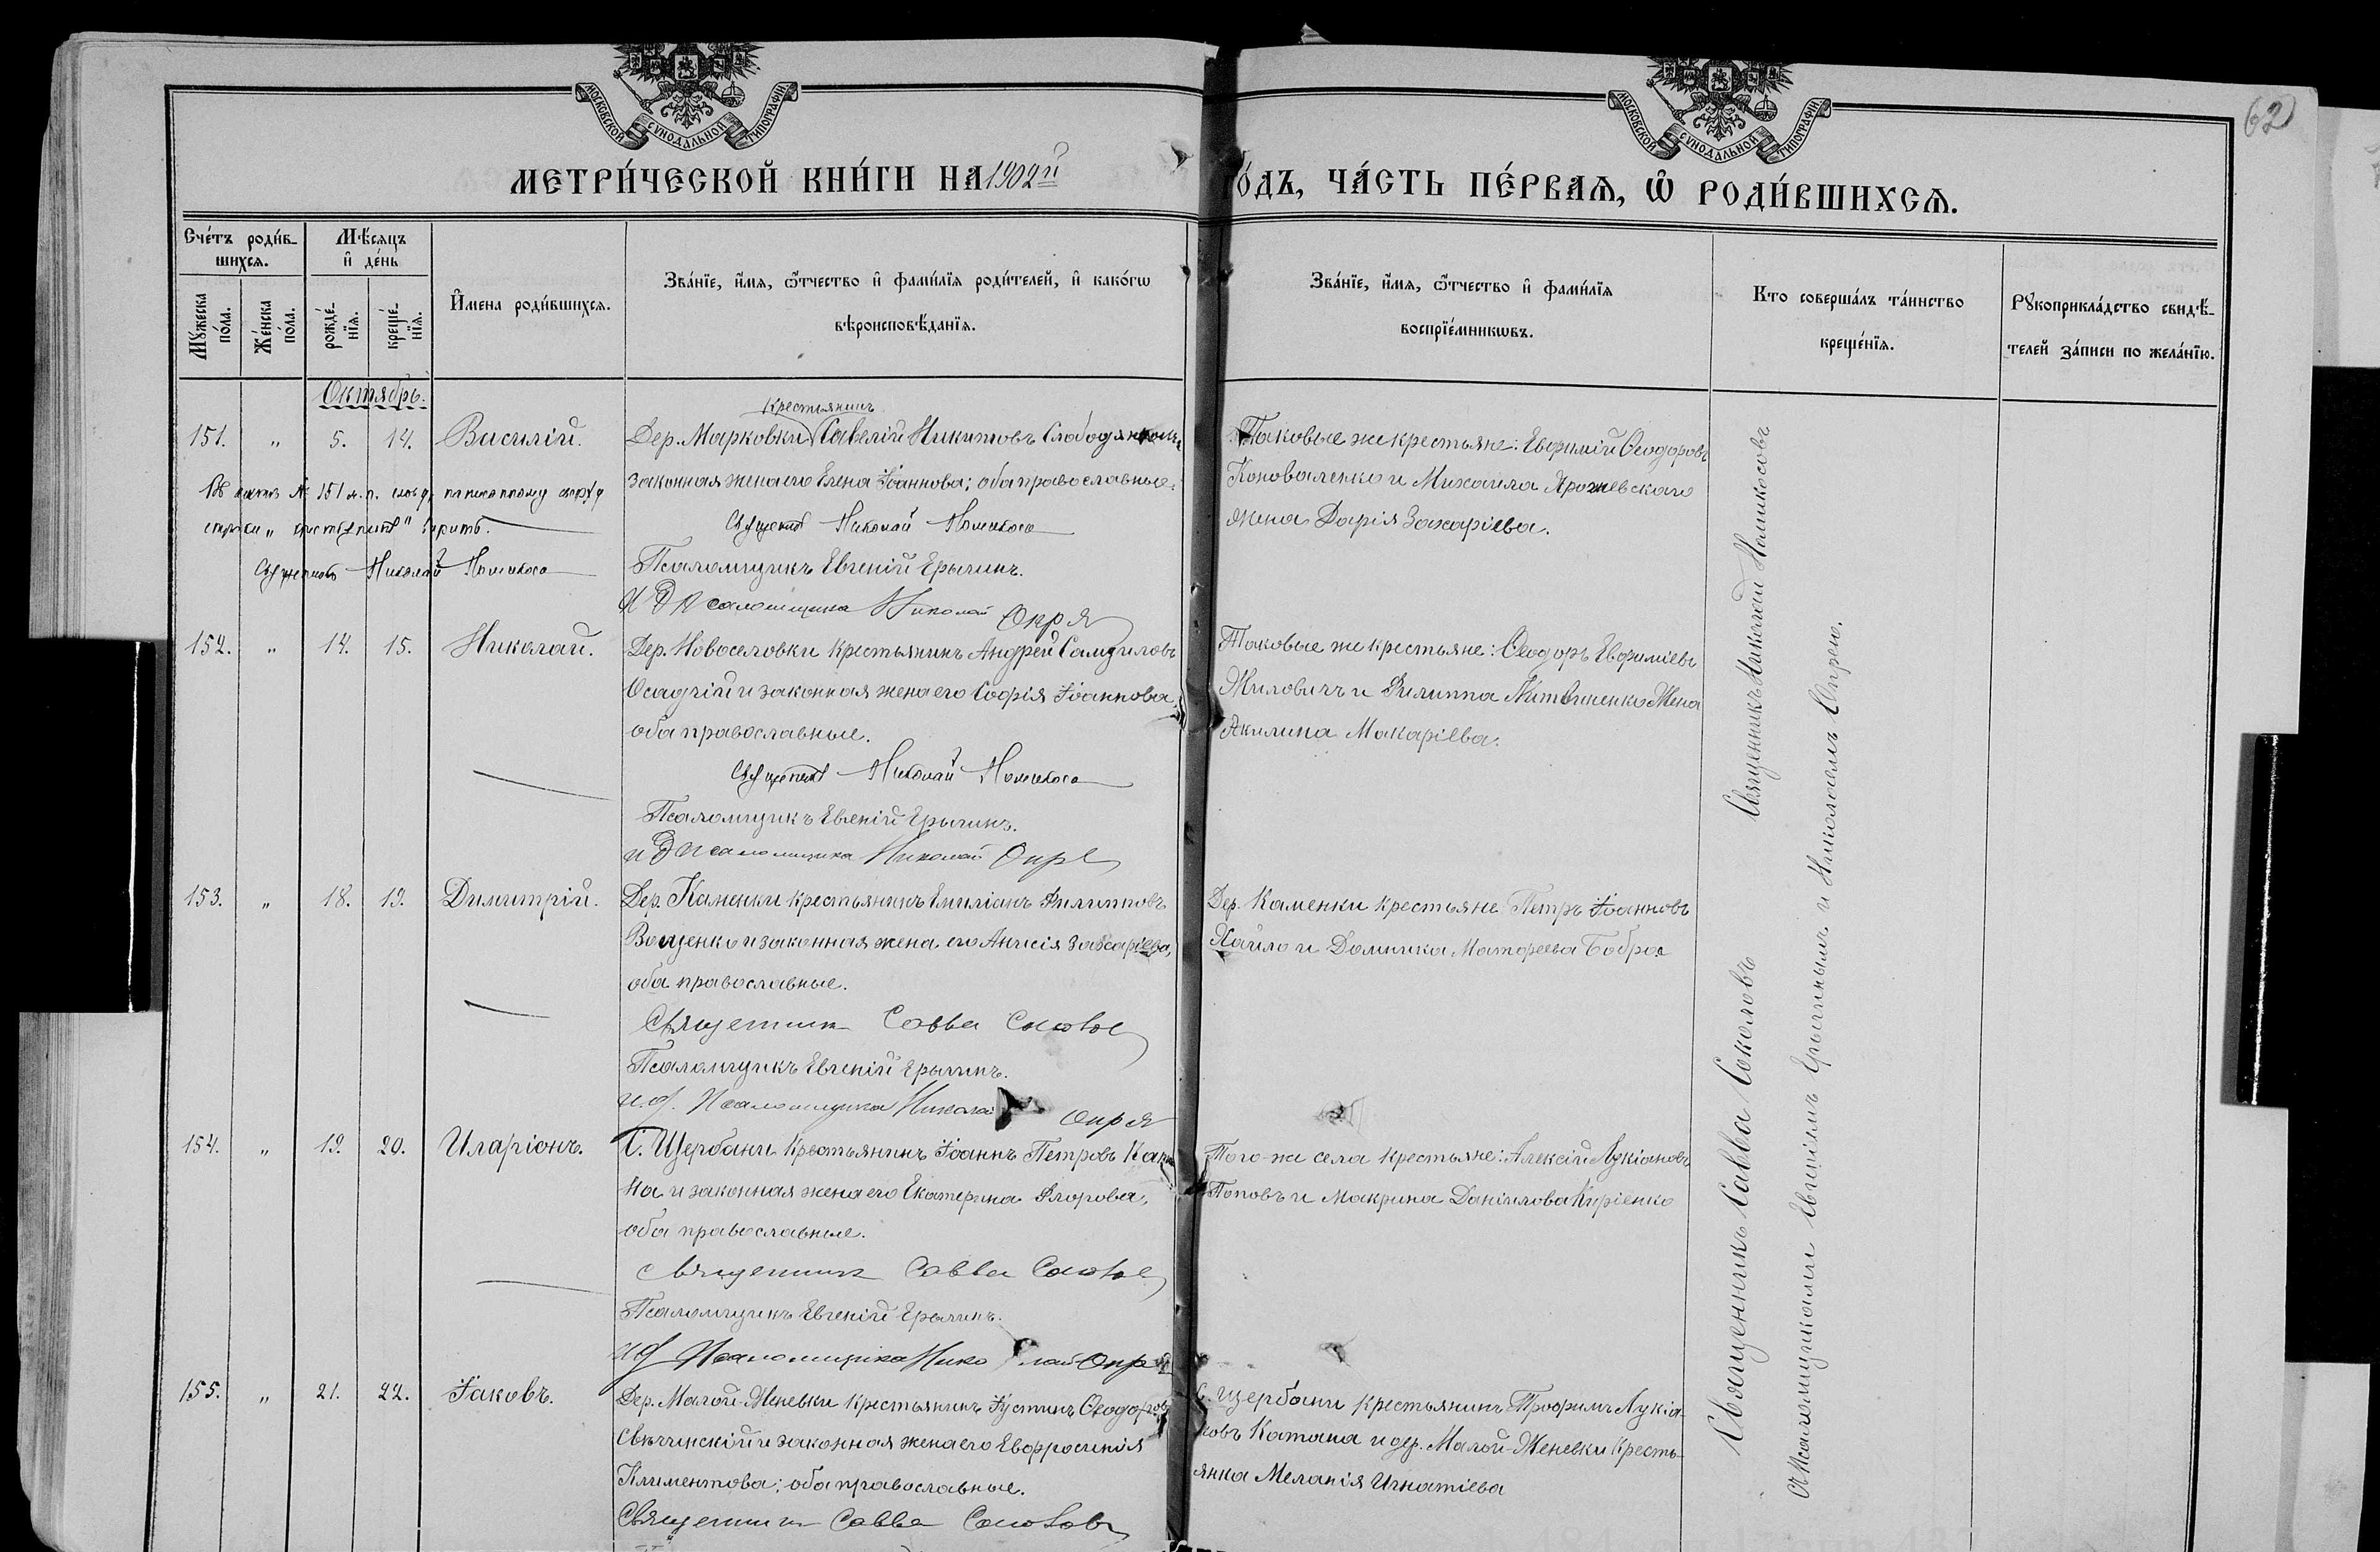 МОСКОВСКОЙ СѴНОДАЛЬНОЙ ТИПОГРАФІИ
МОСКОВСКОЙ СѴНОДАЛЬНОЙ ТИПОГРАФІИ
62
МЕТРИ́ЧЕСКОЙ КНИ́ГИ НА 1902й
О́ДЪ, ЧА́СТЬ ПЕ́РВАѦ, Ѡ҆ РОДИ́ВШИХСѦ.
Сче́тъ роди́в-
шихсѧ.
Мꙋ́жеска
по́ла.
Же́нска
по́ла.
Мѣ́сѧцъ
и҆ де́нь
рожде́-
нїѧ.
креще́-
нїѧ.
И҆мена роди́вшихсѧ.
Зва́нїе, и҆́мѧ, ѻ҆́тчество и҆ фами́лїѧ роди́телей, и҆ како́гѡ
вѣроисповѣ́данїѧ.
Зва́нїе, и҆́мѧ, ѻ҆́тчество и҆ фами́лїѧ
воспрїе́мникѡвъ.
Кто соверша́лъ та́инство
креще́нїѧ.
Рꙋкоприкла́дство свидѣ́-
телей за́писи по жела́нїю.
Октябрь.
151. " 5. 14. Василій.
крестьянинъ
Дер. Марковки Савелій Никитовъ
законная жена его Елена Іоаннова; оба православные.
Священникъ Николай
Псаломщикъ Евгеній Ерыгинъ.
И Д Псаломщика Николай Опря
Таковые же крестьяне: Евфимій Ѳеодоровъ
Коноваленко и Михаила
жена Дарія Захаріева.
151 м. п.
"крестьянинъ"
Священникъ Николай
152. " 14. 15. Николай.
Дер. Новоселовки крестьянинъ Андрей Самуиловъ
Осадчій и законная жена его Софія Іоаннова,
оба православные.
Священникъ Николай
Псаломщикъ Евгеній Ерыгинъ.
и Д Псаломщика Николай Опря
Таковые же крестьяне: Ѳеодоръ Евфиміевъ
Миловичъ и Филиппа Литвиненко жена
Акилина Макаріева.
153. " 18. 19. Димитрій.
Дер. Каменки крестьянинъ Емиліанъ Филипповъ
и законная жена его Анисія Захаріева,
оба православные.
Священникъ Савва Соколовъ
Псаломщикъ Евгеній Ерыгинъ.
и.д. Псаломщика Николай Опря
Дер. Каменки крестьяне Петръ Іоанновъ
Хайло и Домника Матѳеева
154. " 19. 20. Иларіонъ.
С. Щербани крестьянинъ Іоаннъ Петровъ
на и законная жена его Екатерина Флорова,
оба православные.
Священникъ Савва Соколовъ
Псаломщикъ Евгеній Ерыгинъ.
и д Псаломщика Николай Опря
Того-же села крестьяне: Алексій Лукіановъ
Поповъ и Макрина Даніилова Киріенко
155. " 21. 22. Іаковъ.
Дер. Малой-Женевки крестьянинъ Іустинъ Ѳеодоровъ
и законная жена его Евфросинія
Климентова; оба православные.
Священникъ Савва Соколовъ
С. Щербани крестьянинъ Трофимъ Лукіа-
новъ Катана и дер. Малой-Женевки кресть-
янка Меланія Игнатіева
Священникъ Николай
Священникъ Савва Соколовъ
съ Псаломщиками Евгеніемъ Ерыгинымъ и Николаемъ Опрею.